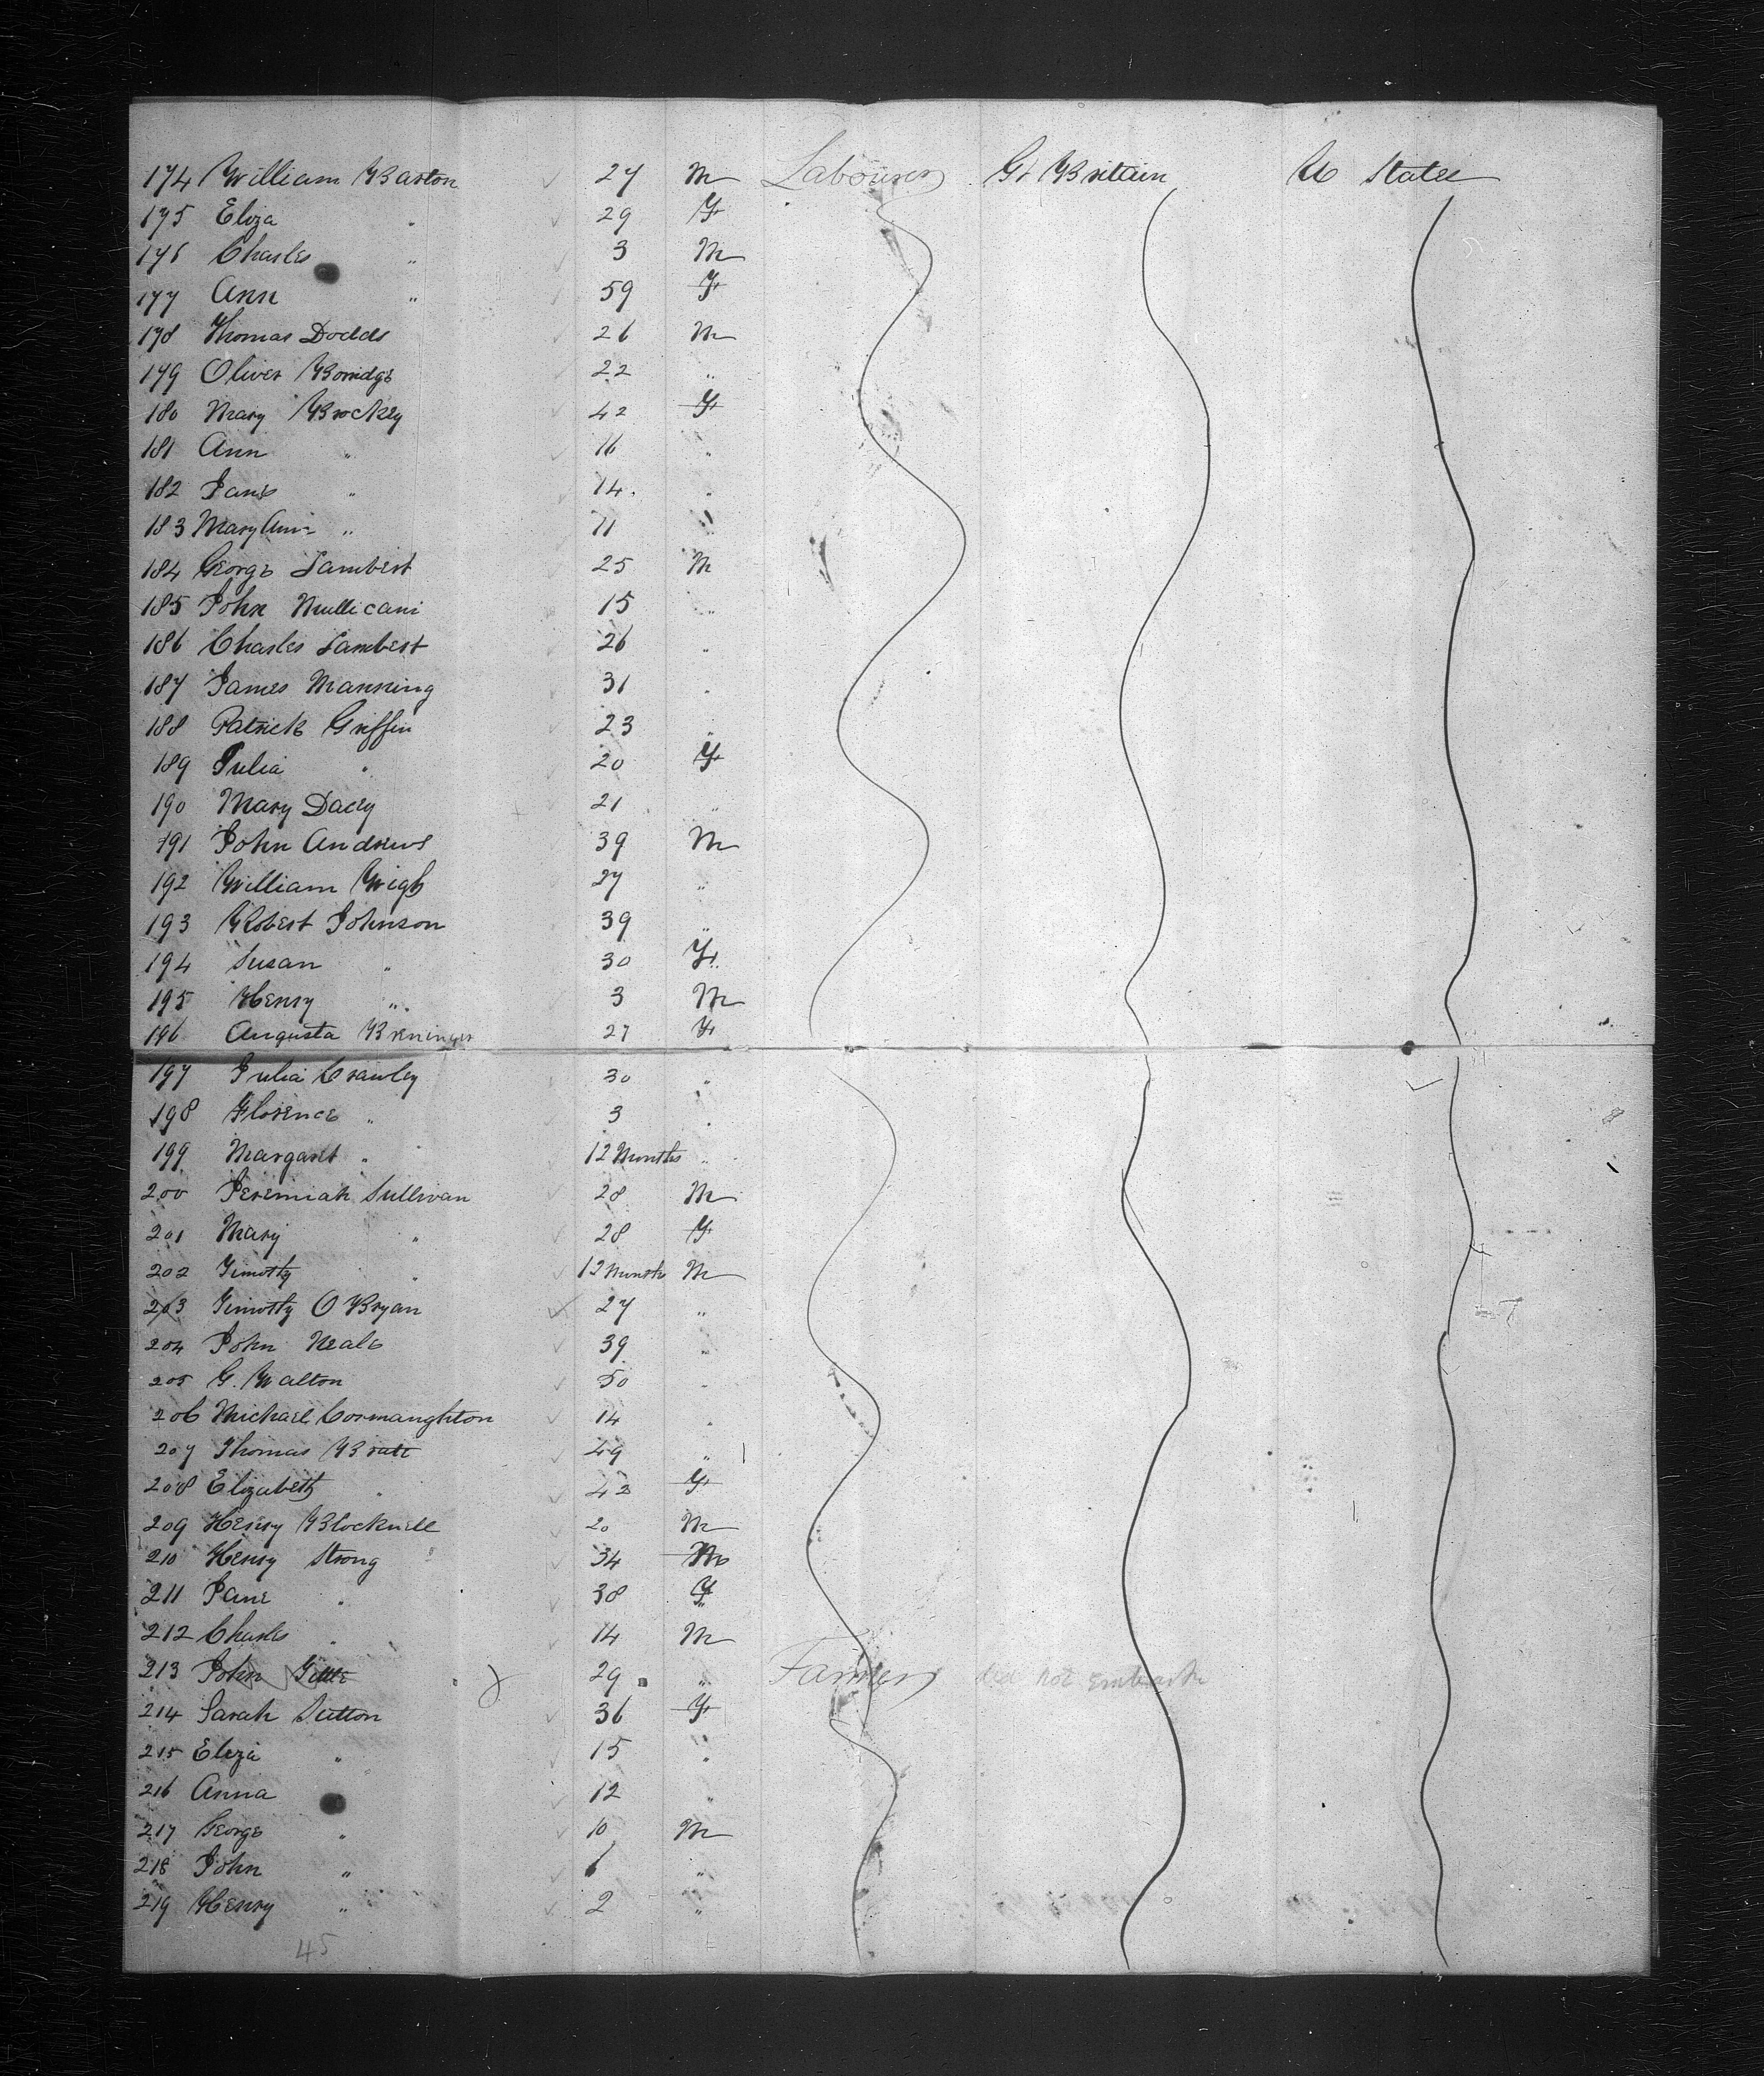 174 William Barton 27 M Labourer Gt Britain U States
175 Eliza " 29 F
176 Charles " 3 M
177 Ann " 59 F
178 Thomas Dodds 26 M
179 Oliver Borridge 22 "
180 Mary Brockey 42 F
181 Ann " 16 "
182 Jane " 14 "
183 Mary Ann " 11 "
184 George Lambert 25 M
185 John Mullicani 15 "
186 Charles Lambert 26 "
187 James Manning 31 "
188 Patrick Griffin 23 "
189 Julia " 20 F
190 Mary Dacey 21 "
191 John Andrews 39 M
192 William Wigh 27 "
193 Robert Johnson 39 "
194 Susan " 30 F
195 Henry " 3 M
196 Augusta Breninger 27 F
197 Julia Crawley 30 "
198 Florence " 3 "
199 Margaret " 12 Months "
200 Jeremiah Sullivan 28 M
201 Mary " 28 F
202 Timothy " 12 Months M
203 Timothy O Bryan 27 "
204 John Neale 39 "
205 G. Walton 50 "
206 Michael Cormanghton 14 "
207 Thomas 49 "
208 Elizabeth " 42 F
209 Henry Blocknell 20 M
210 Henry Strong 34 M
211 Jane " 38 F
212 Charles " 14 M
213 John 29 " Farmer did not Embark
214 Sarah Sutton 36 F
215 Eliza " 15 "
216 Anna 12 "
217 George " 10 M
218 John " 6 "
219 Henry " 2 "
45